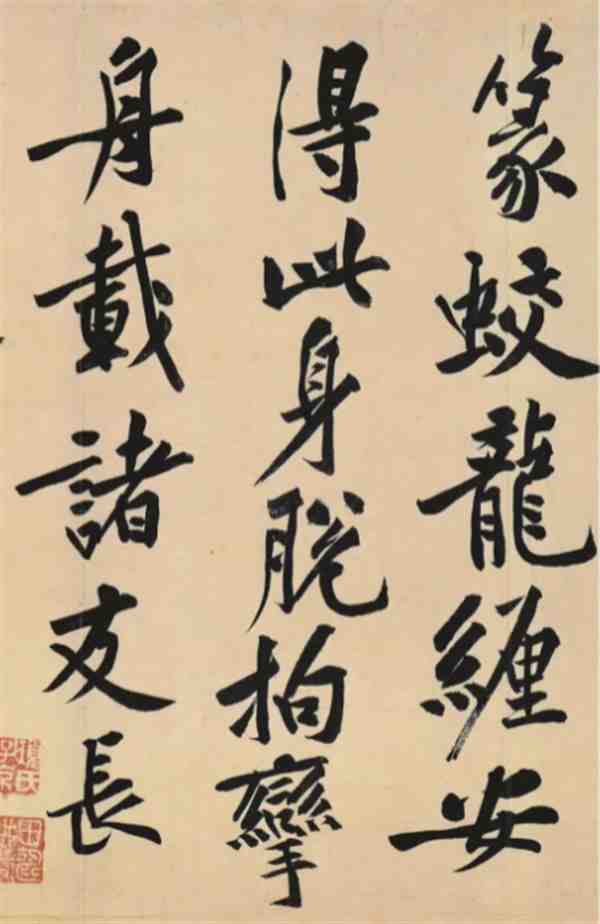 篆蛟龍纏安
得此身脫拘攣
舟載諸友長